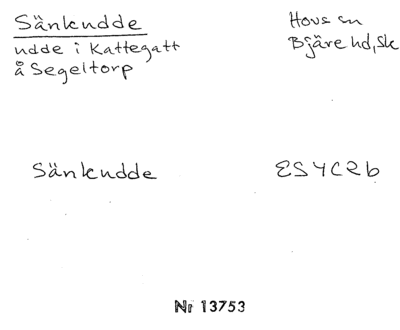 Sänkudde
Hovs sn
udde i Kattegatt
Bjäre hd, Sk
å Segeltorp
Sänkudde
ES4C2b
Nr 13753